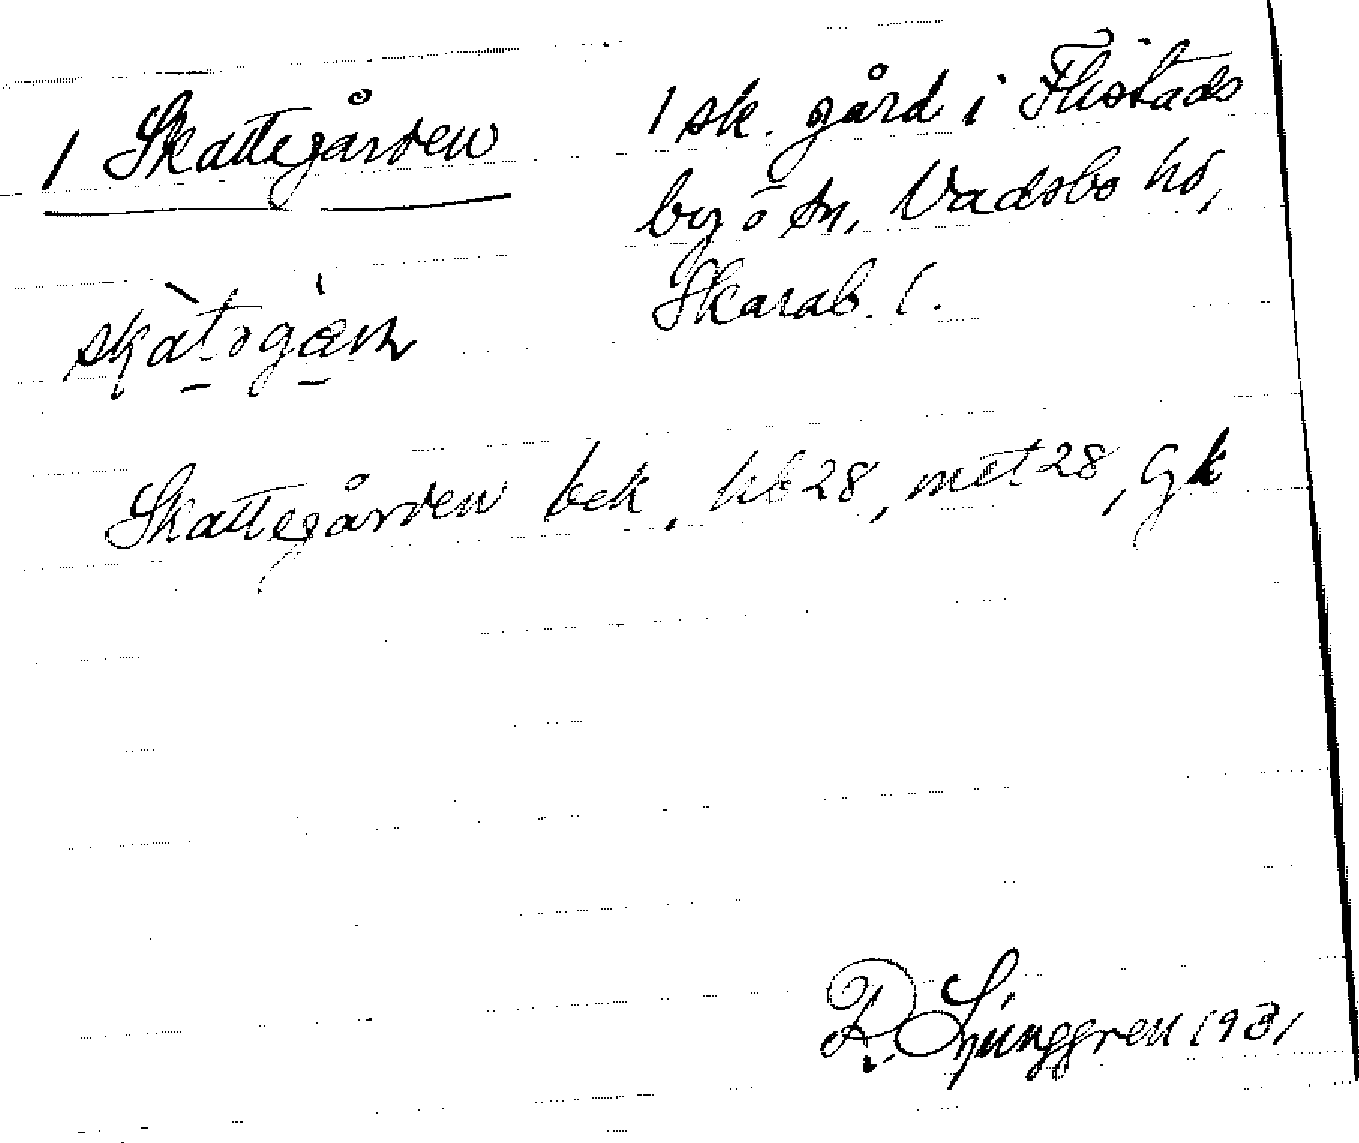 1 Skattegården
1 sk. gård i Flistads
by o sn, Vadsbo hd,
Skarab. l.
skàtəgæ̀ɳ
Skattegården bek, hb 28, met 28, Gk
R. Ljunggren 1931